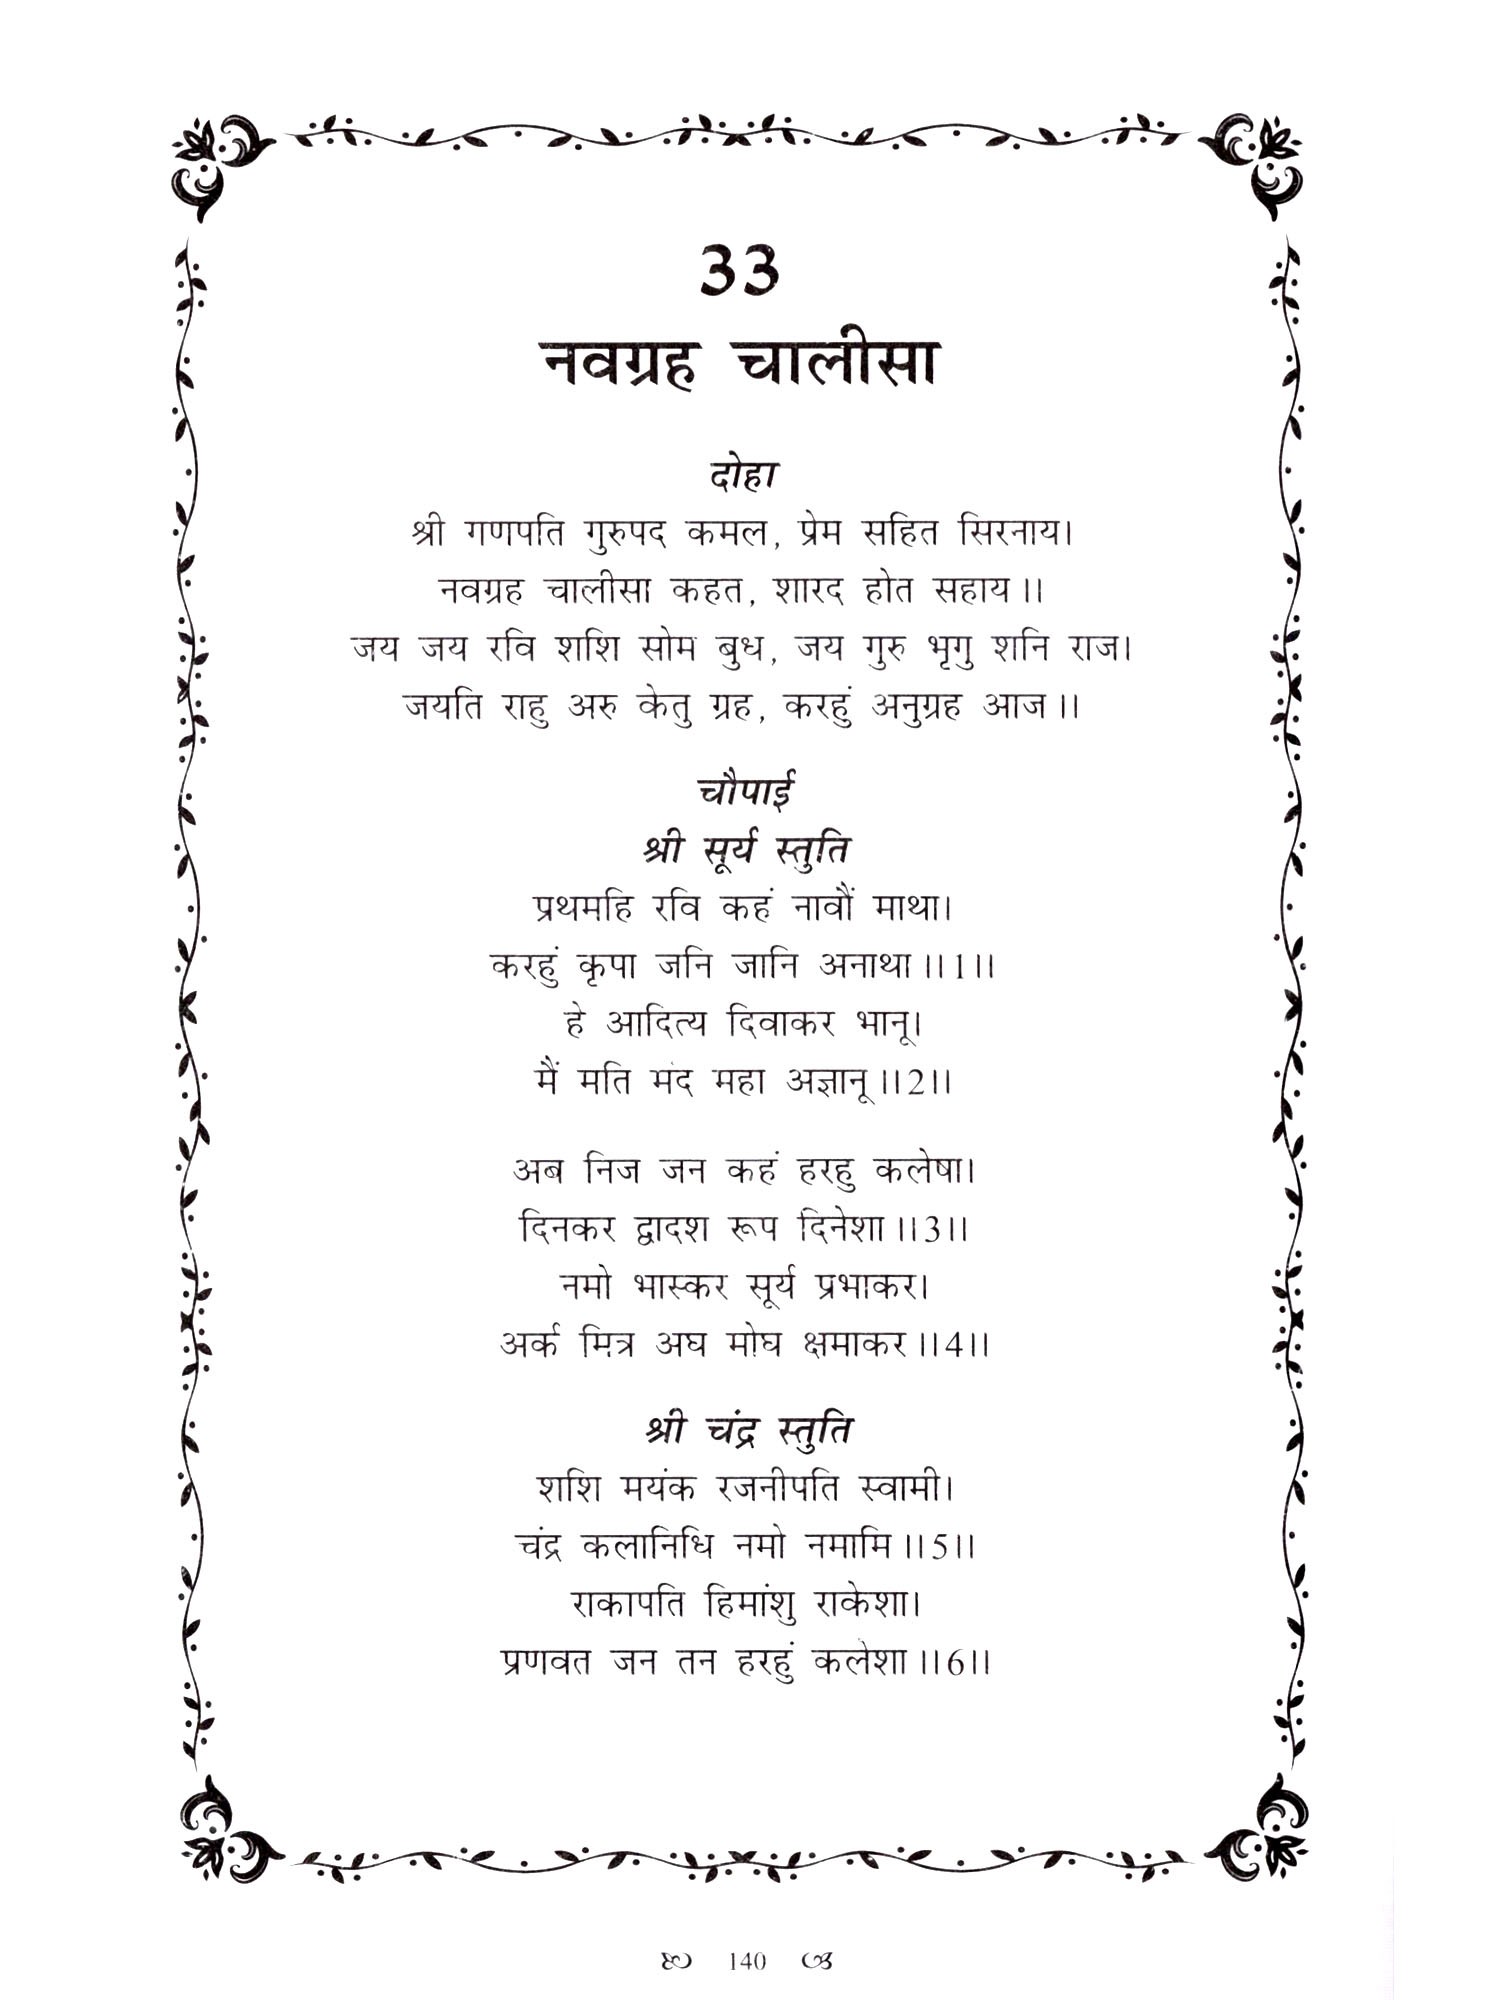 33
नवग्रह चालीसा
दोहा
श्री गणपति गुरुपद कमल, प्रेम सहित सिरनाय।
नवग्रह चालीसा कहत, शारद होत सहाय।।
जय जय रवि शशि सोम बुध, जय गुरु भृगु शनि राज।
जयति राहु अरु केतु ग्रह, करहुं अनुग्रह आज।।
चौपाई
श्री सूर्य स्तुति
प्रथमहि रवि कहं नावौं माथा।
करहुं कृपा जनि जानि अनाथा।।1।।
हे आदित्य दिवाकर भानू।
मैं मति मंद महा अज्ञानू।।2।।
अब निज जन कहं हरहु कलेषा।
दिनकर द्वादश रूप दिनेशा।।3।।
नमो भास्कर सूर्य प्रभाकर।
अर्क मित्र अघ मोघ क्षमाकर।।4।।
श्री चंद्र स्तुति
शशि मयंक रजनीपति स्वामी।
चंद्र कलानिधि नमो नमामि।।5।।
राकापति हिमांशु राकेशा।
प्रणवत जन तन हरहुं कलेशा।।6।।
140